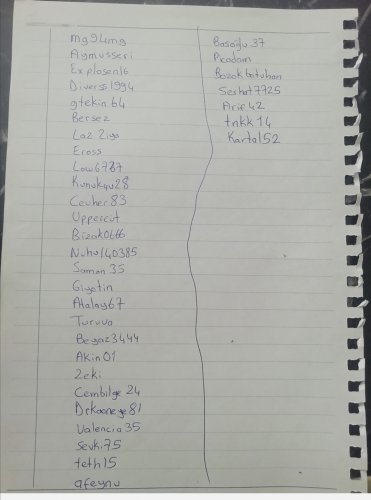 mg94mg
Aymusseri
Explosen16
Diverss1994
gtekin64
Bersez
Laz Ziya
Eross
Low6787
Kunuk4u28
Cevher83
Uppercut
Bizok0666
Nuhu140385
Saman35
Giyotin
Atalay67
Turuva
Beyaz3444
Akin01
Zeki
Cembilge24
Drkaaneye81
Valencia35
Sevki75
teth15
afeynu
Basoğlu37
Picadam
Bozokbatuhan
Serhat7725
Arif42
tnkk14
Kartal52